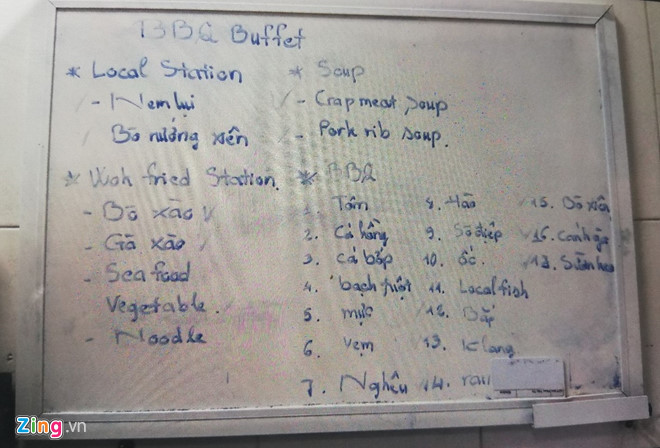 BBQ Buffet
* Local Station
- Nem lụi
Bò nướng xiên
* Wok fried Station.
- Bò xào
- Gà xào
- Sea food
Vegetable.
- Noodle
* Soup
- Crap meat soup
- Pork rib soup.
* BBQ
1. Tôm
2. Cá hồng
3. Cá bớp
4. bạch tuột
5. mực
6. Vẹm
7. Nghêu
8. Hào
9. Sò điệp
10. ốc.
11. Local fish
12. Bắp
13. K lang
14. rau
15. Bò xiên
16. Cánh gà
17. Sườn heo
Zing.vn